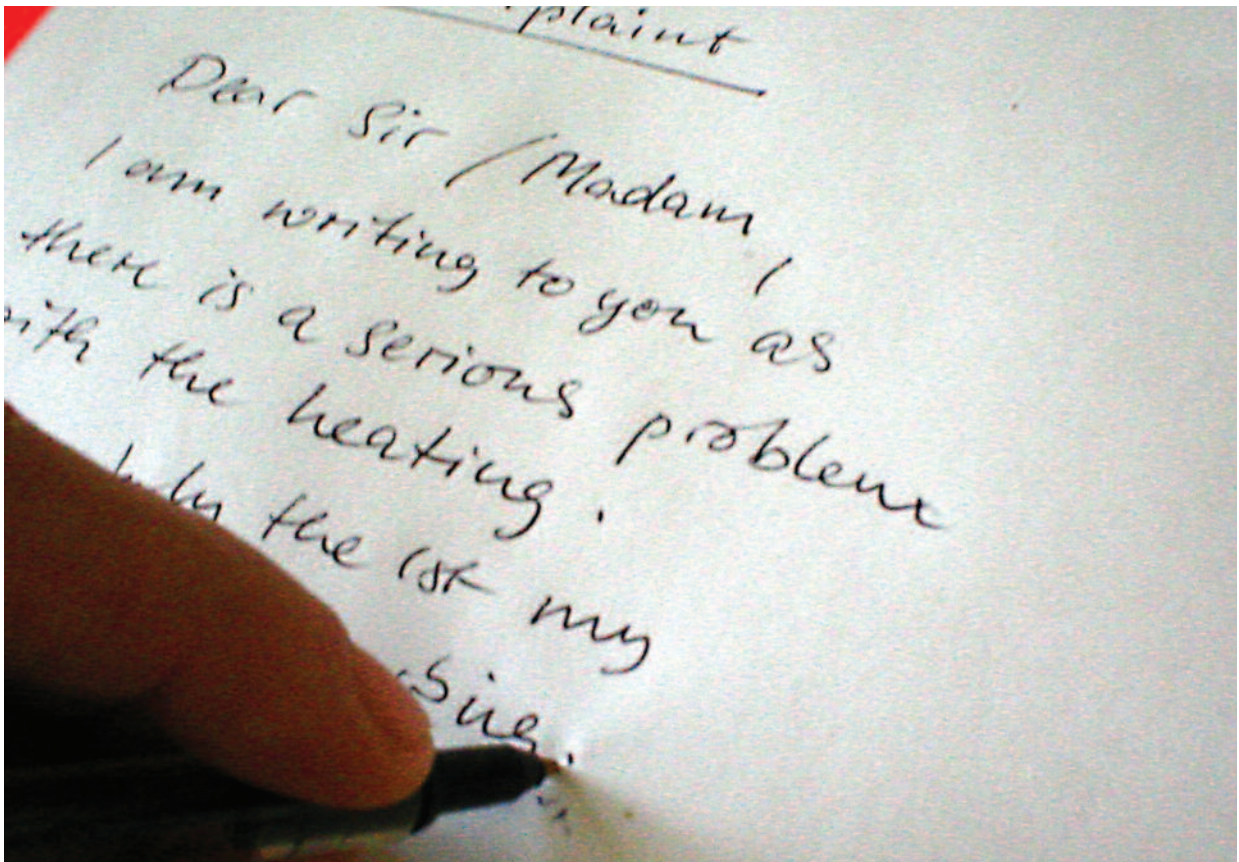 Dear Sir / Madam,
I am writing to you as
there is a serious problem
with the heating.
the 1st my